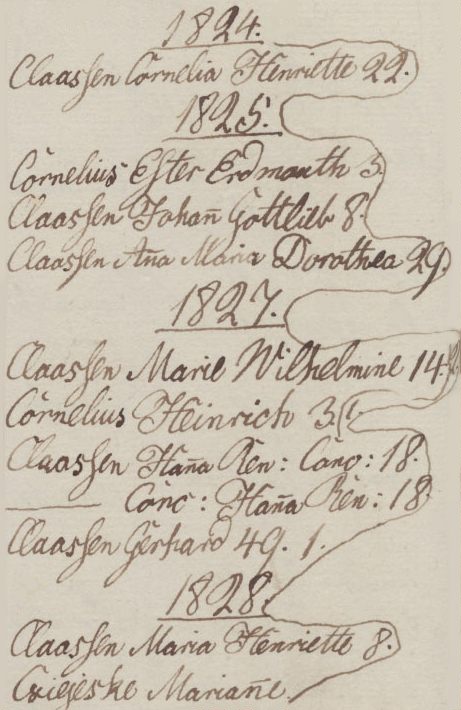 1824.
Claassen Cornelia Henriette 22.
1825.
Cornelius Ester Erdmouth 3.
Claassen Johañ Gottlieb 8.
Claassen Aña Maria Dorothea 29.
1827.
Claassen Marie Wilhelmine 14.
Cornelius Heinrich 3.
Claassen Haña Ren: Caro: 18.
——— Caro: Haña Ren: 18.
Claassen Gerhard 49. 1.
1828.
Claassen Maria Henriette 8.
Mariañe.